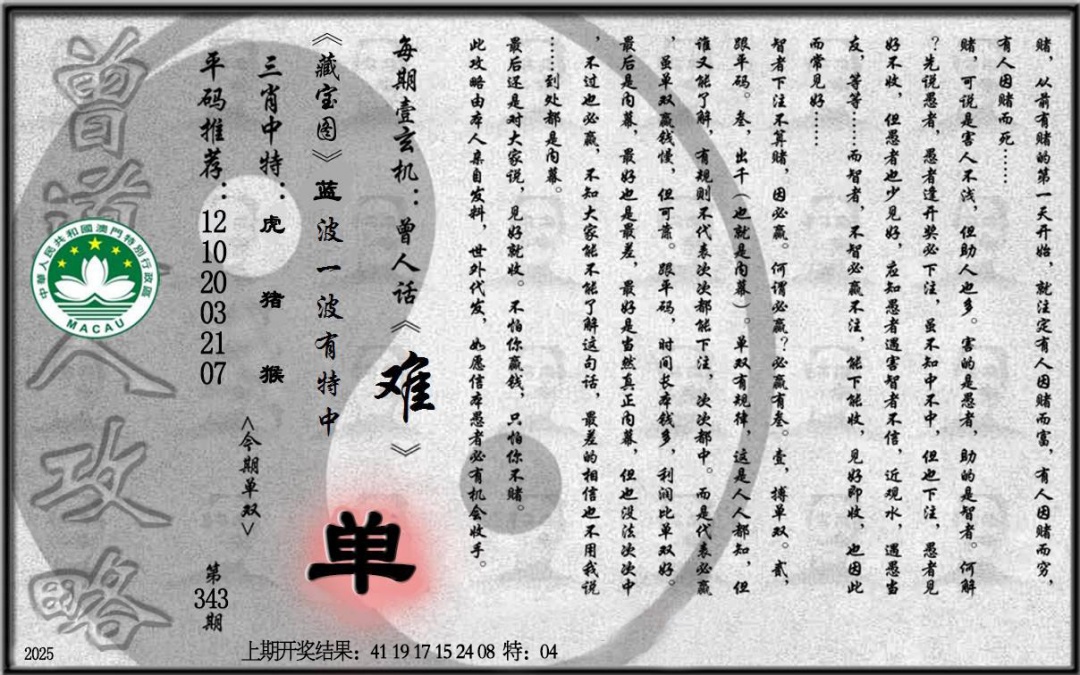 赌，从前有赌的第一天开始，就注定有人因赌而富，有人因赌而穷，
有人因赌而死……
赌，可说是害人不浅，但助人也多。害的是愚者，助的是智者。何解
？先说愚者，愚者逢开奖必下注，虽不知中不中，但也下注，愚者见
好不收，但愚者也少见好，应知愚者遇害智者不信，近观水，遇愚当
友，等等……而智者，不智必赢不注，能下能收，见好即收，也因此
而常见好……
智者下注不算赌，因必赢。何谓必赢？必赢有叁。壹，搏单双。贰，
跟单码。叁，出千（也就是内幕）。单双有规律，这是人人都知，但
谁又能了解，有规则不代表次次都能下注，次次都中。而是代表必赢
，虽单双赢钱慢，但可靠。跟单码，时间长本钱多，利润比单双好。
最后是内幕，最好也是最差，最好是当然真正内幕，但也没法次次中
，不过也必赢，不知大家能不能了解这句话，最差的相信也不用我说
……到处都是内幕。
最后还是对大家说，见好就收。不怕你赢钱，只怕你不赌。
此攻略由本人亲自发料，世外代发，如愿信本愚者必有机会收手。
每期壹玄机：曾人话《难》
《藏宝图》蓝波一波有特中
单
三肖中特：虎 猪 猴
<今期单双>
平码推荐：12 10 20 03 21 07
第343期
曾道人攻略
中華人民共和國澳門特別行政區
MACAU
2025
上期开奖结果：41 19 17 15 24 08 特：04